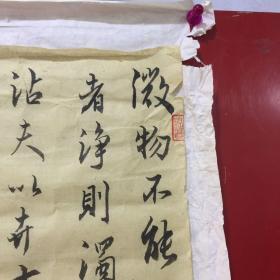 微物不能
者淨則濁
沾夫以卉木